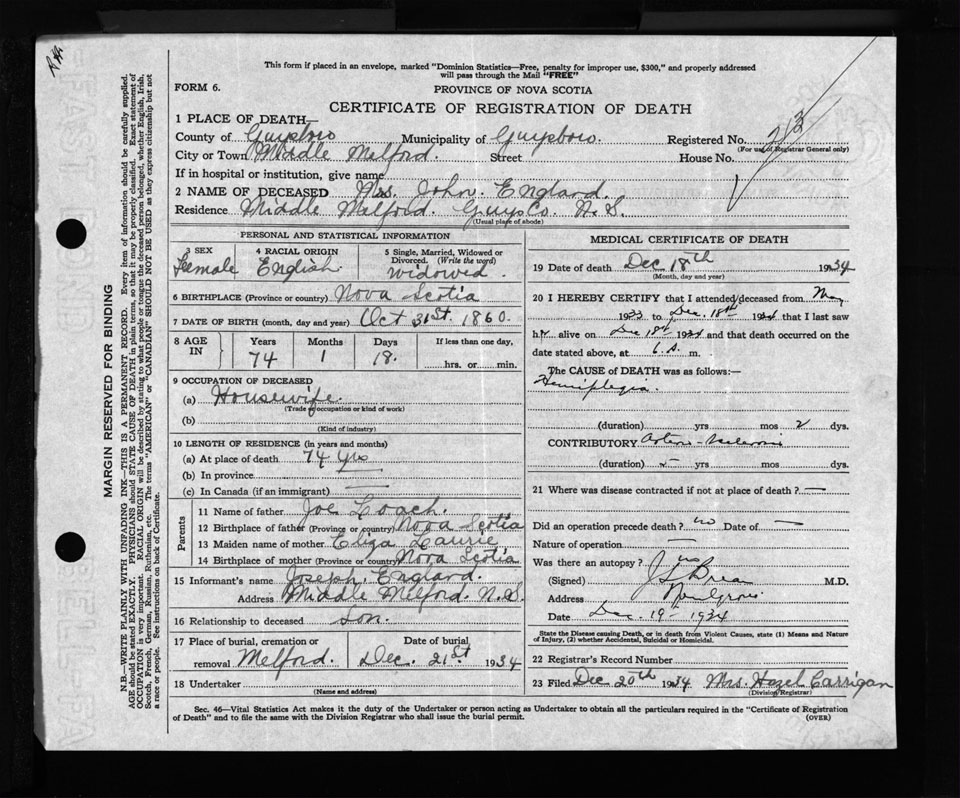 This form if placed in an envelope, marked "Dominion Statistics—Free, penalty for improper use, $300," and properly addressed
will pass through the Mail "FREE"
FORM 6.
PROVINCE OF NOVA SCOTIA
CERTIFICATE OF REGISTRATION OF DEATH
1 PLACE OF DEATH—
County of Guysboro Municipality of Guysboro. Registered No. 213
(For use of Registrar General only)
City or Town Middle Melford. Street House No.
If in hospital or institution, give name
2 NAME OF DECEASED Mrs. John. England.
Residence Middle Melford. Guys Co. N.S.
(Usual place of abode)
PERSONAL AND STATISTICAL INFORMATION
3 SEX
Female
4 RACIAL ORIGIN
English.
5 Single, Married, Widowed or
Divorced. (Write the word)
widowed.
6 BIRTHPLACE (Province or country) Nova Scotia
7 DATE OF BIRTH (month, day and year) Oct 31st. 1860.
8 AGE IN
Years Months Days If less than one day,
74 1 18. hrs. or min.
9 OCCUPATION OF DECEASED
(a) Housewife.
(Trade, occupation or kind of work)
(b)
(Kind of industry)
10 LENGTH OF RESIDENCE (in years and months)
(a) At place of death 74 yrs
(b) In province —
(c) In Canada (if an immigrant) —
Parents
11 Name of father Joe Loach.
12 Birthplace of father (Province or country) Nova Scotia
13 Maiden name of mother Eliza Laurie
14 Birthplace of mother (Province or country) Nova Scotia
15 Informant's name Joseph. England.
Address Middle Melford. N.S.
16 Relationship to deceased son.
17 Place of burial, cremation or
removal Melford.
Date of burial
Dec. 21st 1934
18 Undertaker
(Name and address)
MEDICAL CERTIFICATE OF DEATH
19 Date of death Dec 18th 1934
(Month, day and year)
20 I HEREBY CERTIFY that I attended deceased from May
1933 to Dec. 18th 1934 that I last saw
her alive on Dec 18th 1934 and that death occurred on the
date stated above, at 6 A. m.
The CAUSE of DEATH was as follows:—
Hemiplegia.
(duration) yrs mos 2 dys.
CONTRIBUTORY
(duration) yrs mos dys.
21 Where was disease contracted if not at place of death? —
Did an operation precede death? no Date of —
Nature of operation —
Was there an autopsy? no
(Signed) M.D.
Address Mulgrave
Date Dec. 19th 1934
State the Disease causing Death, or in death from Violent Causes, state (1) Means and Nature
of Injury, (2) whether Accidental, Suicidal or Homicidal.
22 Registrar's Record Number
23 Filed Dec 20th 1934 Mrs. Hazel Carrigan
(Division Registrar)
Sec. 46—Vital Statistics Act makes it the duty of the Undertaker or person acting as Undertaker to obtain all the particulars required in the "Certificate of Registration
of Death" and to file the same with the Division Registrar who shall issue the burial permit. (OVER)
MARGIN RESERVED FOR BINDING
N.B.—WRITE PLAINLY WITH UNFADING INK—THIS IS A PERMANENT RECORD. Every item of information should be carefully supplied.
AGE should be stated EXACTLY. PHYSICIANS should STATE CAUSE OF DEATH in plain terms, so that it may be properly classified. Exact statement of
OCCUPATION is very important. RACIAL ORIGIN will be described by stating to what people or tongue the deceased person belonged, whether English, Irish,
Scotch, French, German, Russian, Ruthenian, etc. The terms "AMERICAN" or "CANADIAN" SHOULD NOT BE USED as they express citizenship but not
a race or people. See instructions on back of Certificate.